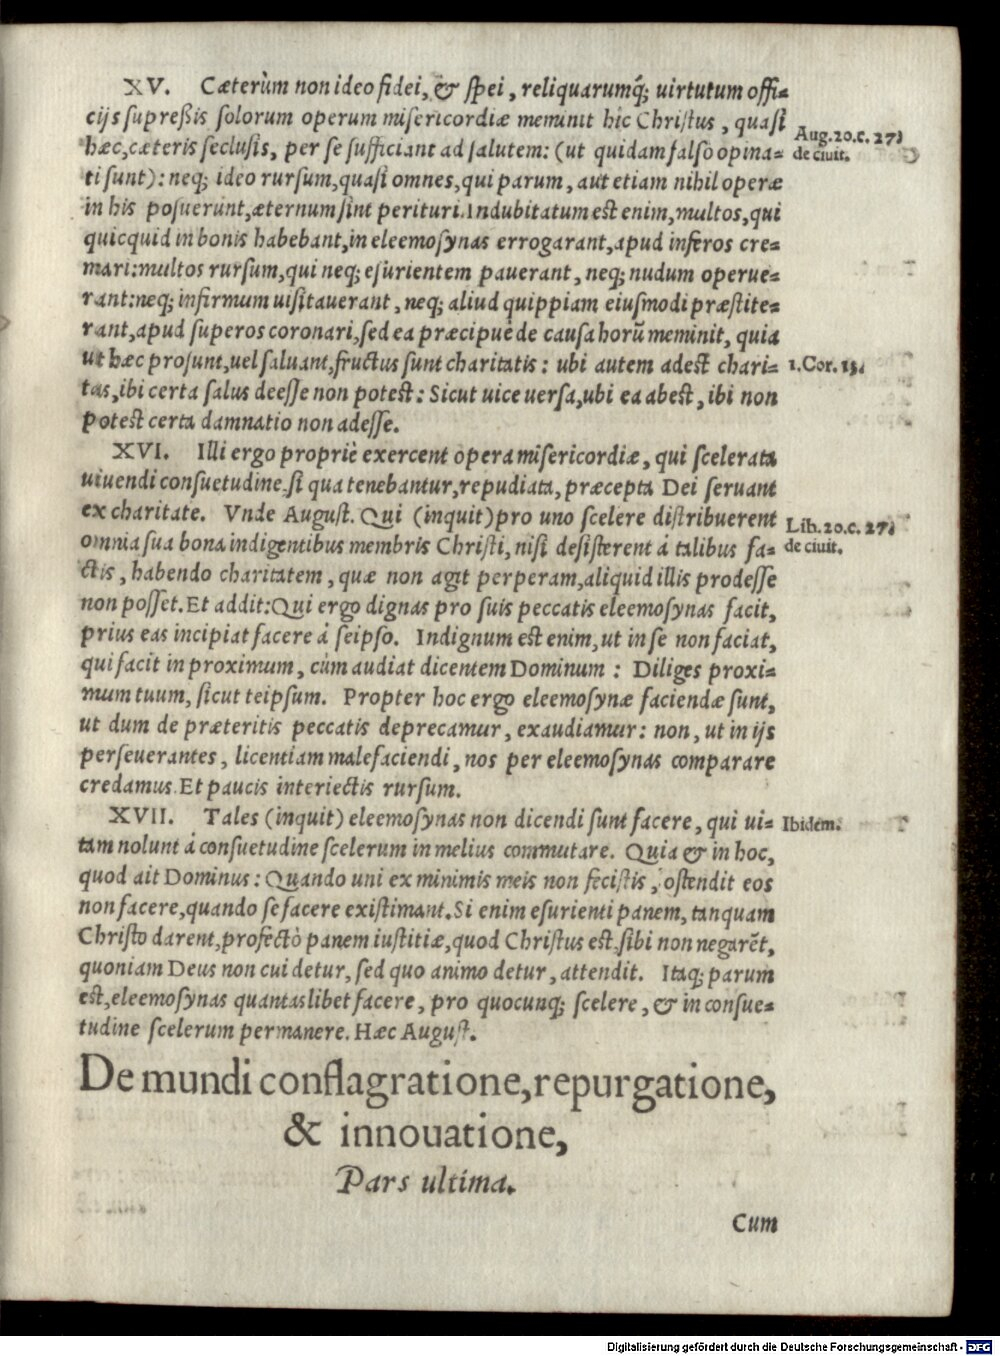 XV. Cæterùm non ideo fidei, & spei, reliquarumq; uirtutum offi-
cijs supreßis solorum operum misericordiæ meminit hic Christus, quasi
hæc, cæteris seclusis, per se sufficiant ad salutem: (ut quidam falsò opina-
ti sunt): neq; ideo rursum, quasi omnes, qui parum, aut etiam nihil operæ
in his posuerunt, æternum sint perituri. Indubitatum est enim, multos, qui
quicquid in bonis habebant, in eleemosynas errogarant, apud inferos cre-
mari: multos rursum, qui neq; esurientem pauerant, neq; nudum operue-
rant: neq; infirmum uisitauerant, neq; aliud quippiam eiusmodi præstite-
rant, apud superos coronari, sed ea præcipuè de causa horũ meminit, quia
ut hæc prosunt, uel saluant, fructus sunt charitatis: ubi autem adest chari-
tas, ibi certa salus deesse non potest: Sicut uice uersa, ubi ea abest, ibi non
potest certa damnatio non adesse.
Aug. 20. c. 27.
de ciuit.
1. Cor. 13.
XVI. Illi ergo propriè exercent opera misericordiæ, qui scelerata
uiuendi consuetudine, si qua tenebantur, repudiata, præcepta Dei seruant
ex charitate. Vnde August. Qui (inquit) pro uno scelere distribuerent
omnia sua bona indigentibus membris Christi, nisi desisterent à talibus fa-
ctis, habendo charitatem, quæ non agit perperam, aliquid illis prodesse
non posset. Et addit: Qui ergo dignas pro suis peccatis eleemosynas facit,
prius eas incipiat facere à seipso. Indignum est enim, ut in se non faciat,
qui facit in proximum, cùm audiat dicentem Dominum: Diliges proxi-
mum tuum, sicut teipsum. Propter hoc ergo eleemosynæ faciendæ sunt,
ut dum de præteritis peccatis deprecamur, exaudiamur: non, ut in ijs
perseuerantes, licentiam malefaciendi, nos per eleemosynas comparare
credamus. Et paucis interiectis rursum.
Lib. 20. c. 27.
de ciuit.
XVII. Tales (inquit) eleemosynas non dicendi sunt facere, qui ui-
tam nolunt à consuetudine scelerum in melius commutare. Quia & in hoc,
quod ait Dominus: Quando uni ex minimis meis non fecistis, ostendit eos
non facere, quando se facere existimant. Si enim esurienti panem, tanquam
Christo darent, profectò panem iustitiæ, quod Christus est, sibi non negarẽt,
quoniam Deus non cui detur, sed quo animo detur, attendit. Itaq; parum
est, eleemosynas quantaslibet facere, pro quocunq; scelere, & in consue-
tudine scelerum permanere. Hæc August.
Ibidem.
De mundi conflagratione, repurgatione,
& innouatione,
Pars ultima.
Cum
Digitalisierung gefördert durch die Deutsche Forschungsgemeinschaft - DFG